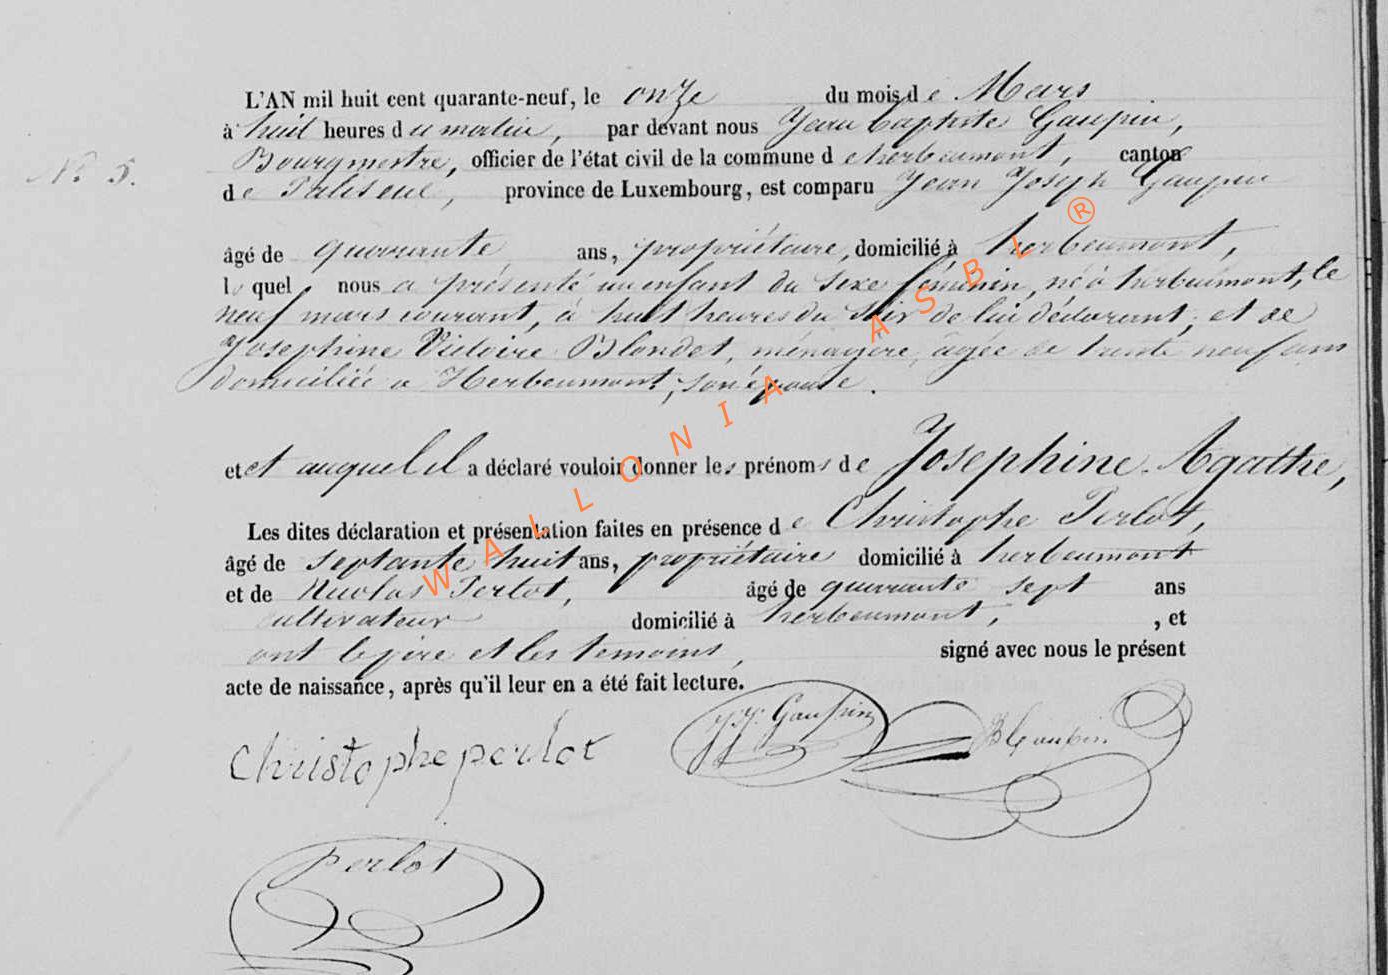 L'AN mil huit cent quarante-neuf, le onze du mois de Mars
à huit heures du matin, par devant nous Jean Baptiste Gaupin,
N° 5.
Bourgmestre, officier de l'état civil de la commune de herbeumont, canton
de Paliseul, province de Luxembourg, est comparu Jean Joseph Gaupin
âgé de quarante ans, propriétaire, domicilié à herbeumont,
lequel nous a présenté un enfant du sexe féminin, né à herbeumont, le
neuf mars courant, à huit heures du soir de lui déclarant, et de
Josephine Victoire Blondet, ménagère, âgée de trente neuf ans
domiciliée a Herbeumont, son épouse.
et et auquel il a déclaré vouloir donner les prénoms de Josephine Agathe,
Les dites déclaration et présentation faites en présence de Christophe Perlot,
âgé de septante huit ans, propriétaire domicilié à herbeumont
et de Nicolas Perlot, âgé de quarante sept ans
cultivateur domicilié à herbeumont, , et
ont le père et les temoins, signé avec nous le présent
acte de naissance, après qu'il leur en a été fait lecture.
JJ. Gaupin
JB Gaupin
Christophe perlot
perlot
WALLONIA ASBL ®